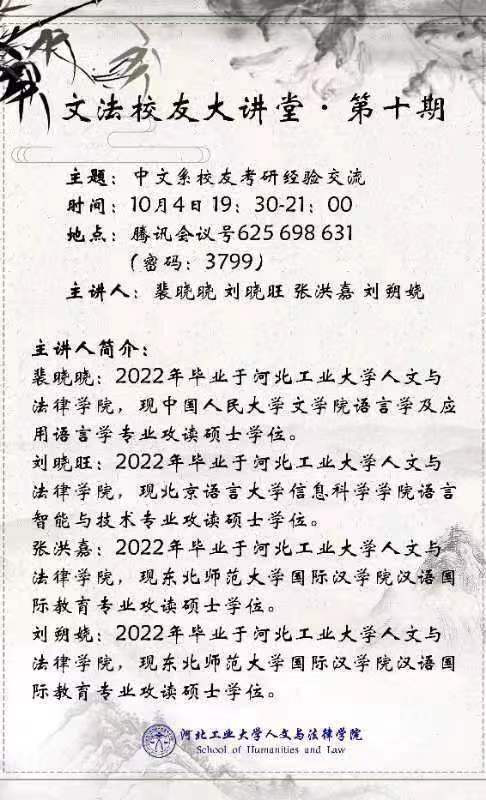 文法校友大讲堂·第十期
主题：中文系校友考研经验交流
时间：10月4日 19：30-21：00
地点：腾讯会议号625 698 631
（密码：3799）
主讲人：裴晓晓 刘晓旺 张洪嘉 刘朔娆
主讲人简介：
裴晓晓：2022年毕业于河北工业大学人文与
法律学院，现中国人民大学文学院语言学及应
用语言学专业攻读硕士学位。
刘晓旺：2022年毕业于河北工业大学人文与
法律学院，现北京语言大学信息科学学院语言
智能与技术专业攻读硕士学位。
张洪嘉：2022年毕业于河北工业大学人文与
法律学院，现东北师范大学国际汉学院汉语国
际教育专业攻读硕士学位。
刘朔娆：2022年毕业于河北工业大学人文与
法律学院，现东北师范大学国际汉学院汉语国
际教育专业攻读硕士学位。
河北工业大学人文与法律学院
School of Humanities and Law